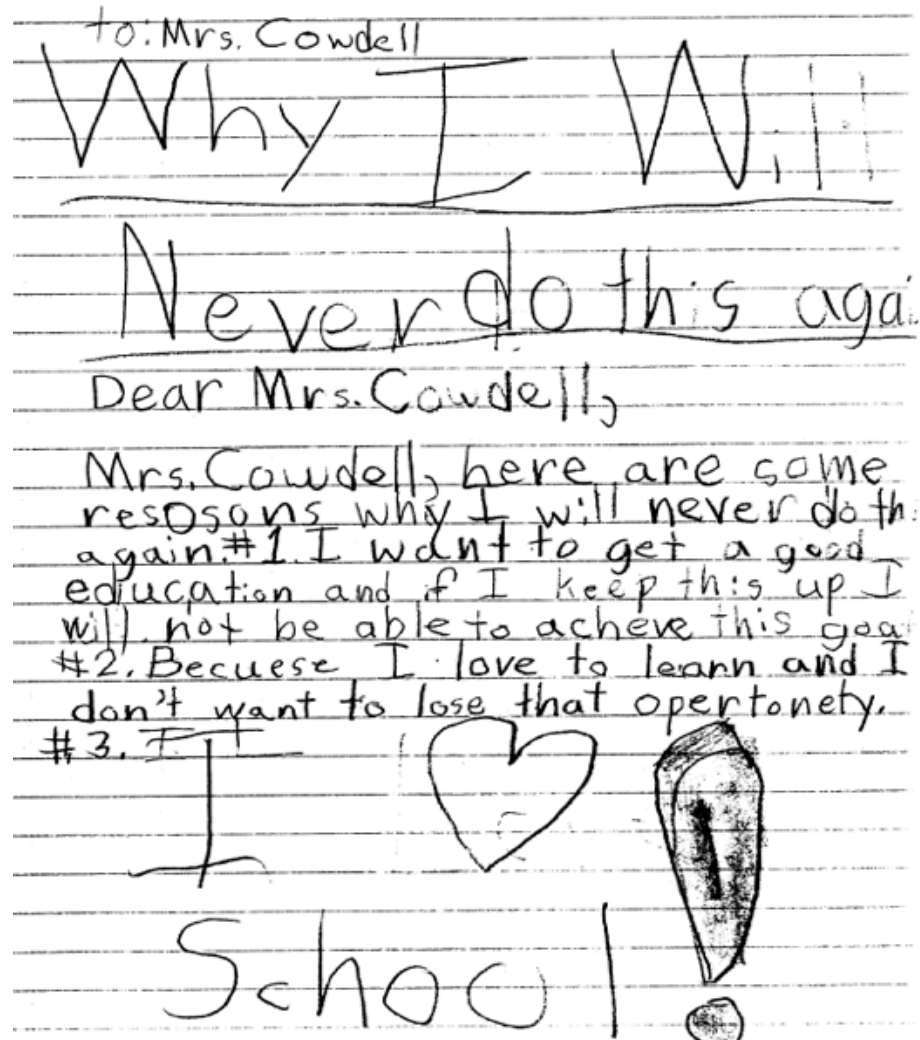 to: Mrs. Cowdell
Why I Will
Never do this aga
Dear Mrs. Cowdell,
Mrs. Cowdell, here are some
resosons why I will never do th
again. #1. I want to get a good
education and if I keep this up I
will not be able to acheve this goa
#2. Becuese I love to learn and I
don't want to lose that opertonety.
#3. I
I ♥ !
School